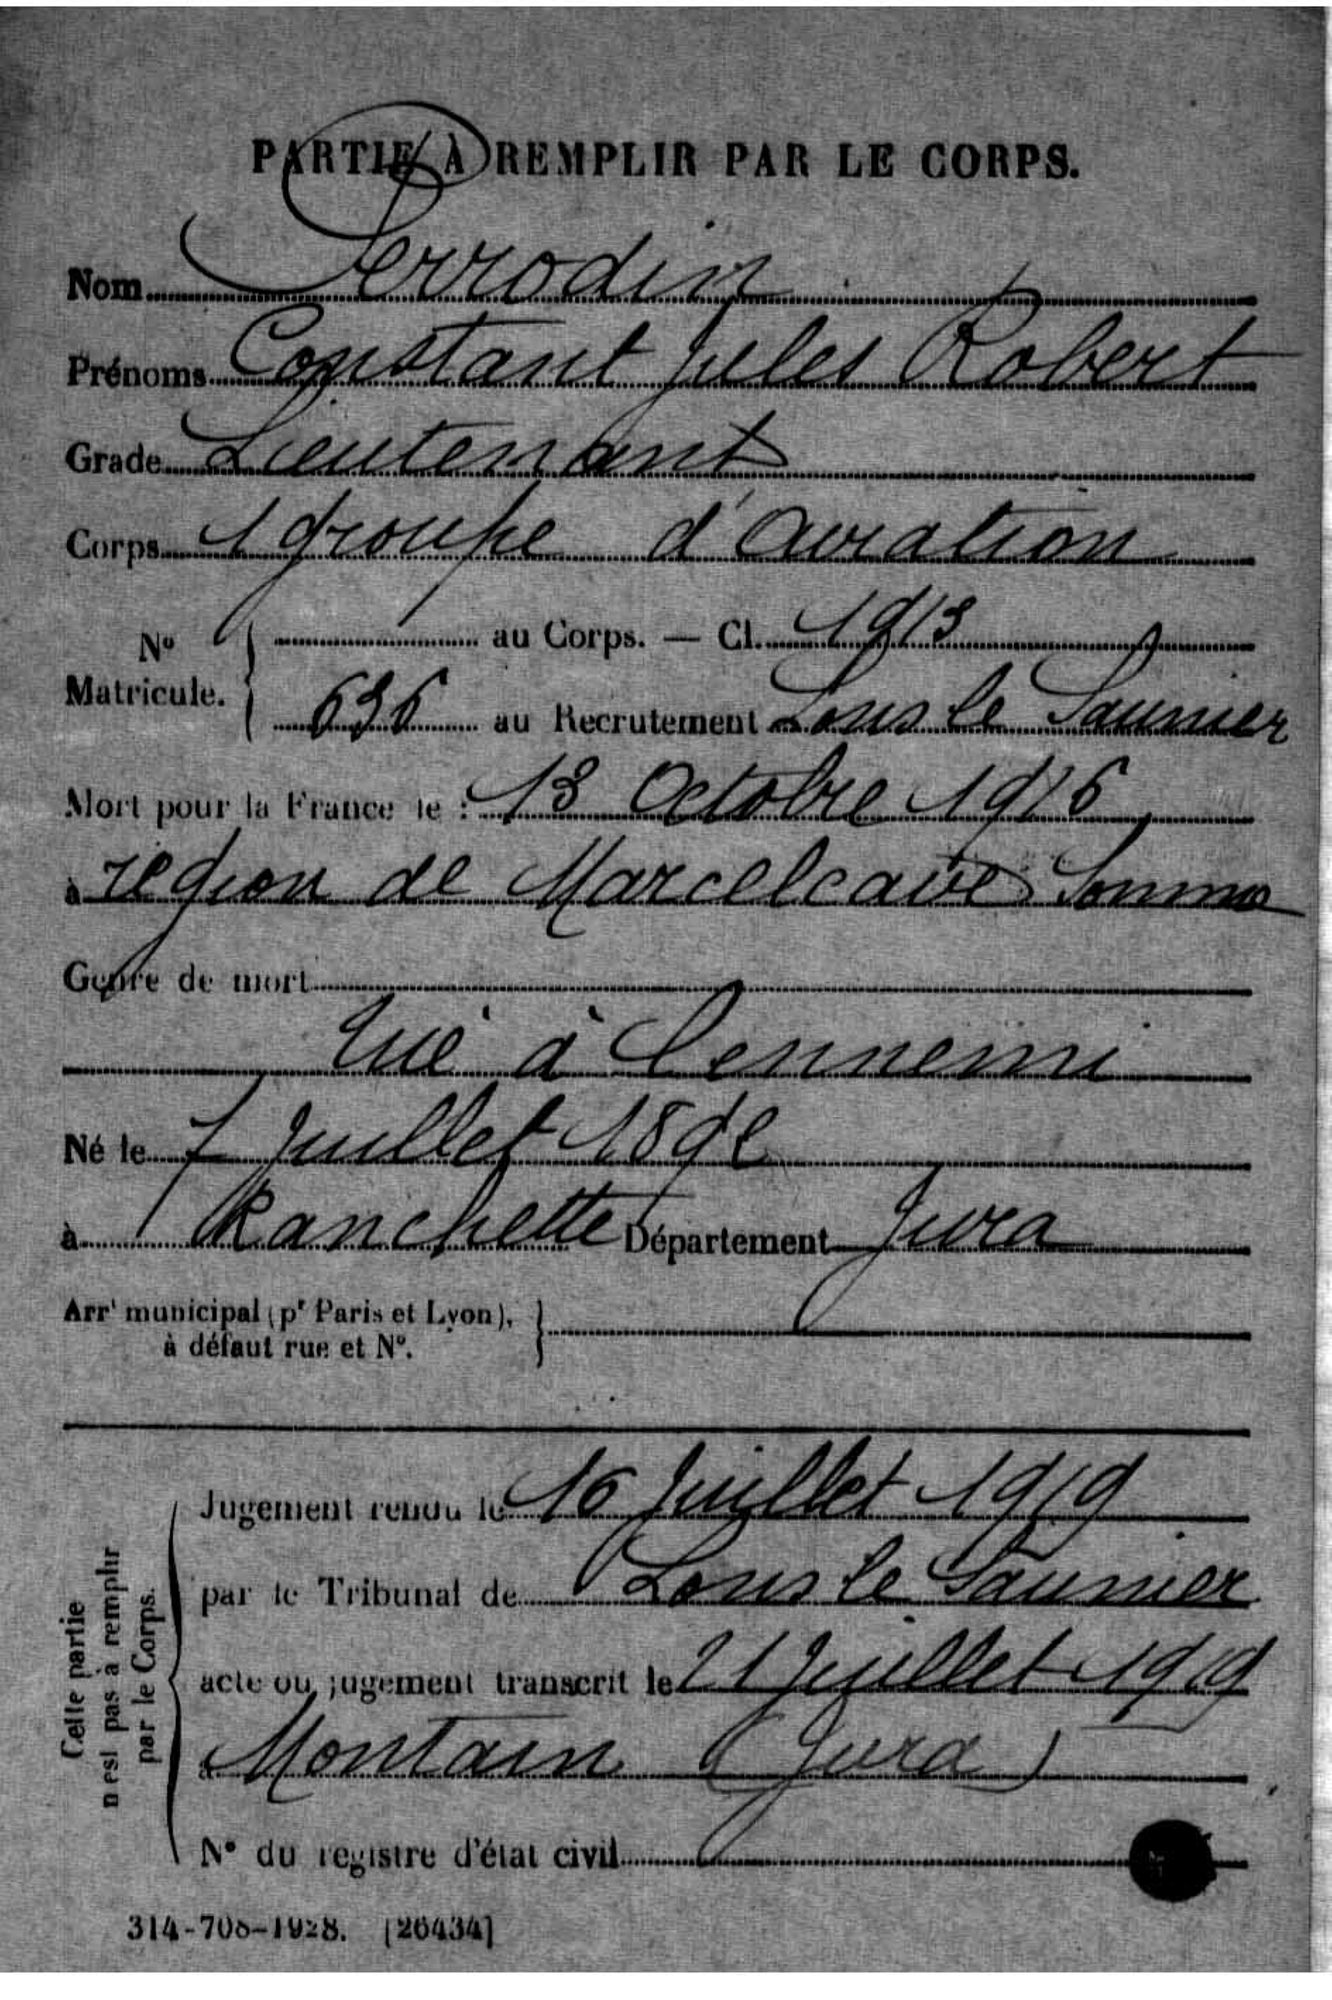 PARTIE À REMPLIR PAR LE CORPS.
Nom Perrodin
Prénoms Constant Jules Robert
Grade Lieutenant
Corps 1 groupe d'aviation
No Matricule. { au Corps. — Cl. 1913
636 au Recrutement Lons le Saunier
Mort pour la France le : 13 Octobre 1916
à région de Marcelcave Somme
Genre de mort
tué à l'ennemi
Né le 7 Juillet 1892
à Ranchette Département Jura
Arrt municipal (pr Paris et Lyon), à défaut rue et No. }
Jugement rendu le 16 Juillet 1919
par le Tribunal de Lons le Saunier
acte ou jugement transcrit le 21 Juillet 1919
à Montain (Jura)
No du registre d'état civil
Cette partie n'est pas à remplir par le Corps.
314-708-1928. [26434]